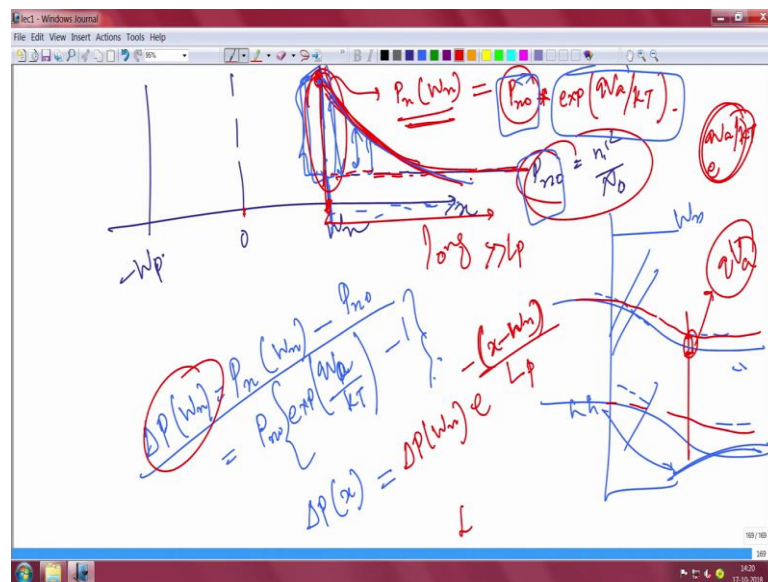 lec1 - Windows Journal
File Edit View Insert Actions Tools Help
96%
Pn(Wn) = Pno * exp(qVa/kT).
e qVa/kT
Pno = ni²/ND
-Wp
0
Wn
x
long >> Lp
Wn
qVa
ΔP(Wn) = Pn(Wn) - Pno
= Pno { exp(qVa/kT) - 1 }
ΔP(x) = ΔP(Wn) e -(x-Wn)/Lp
hh
L
169/169
169
14:20
17-10-2018